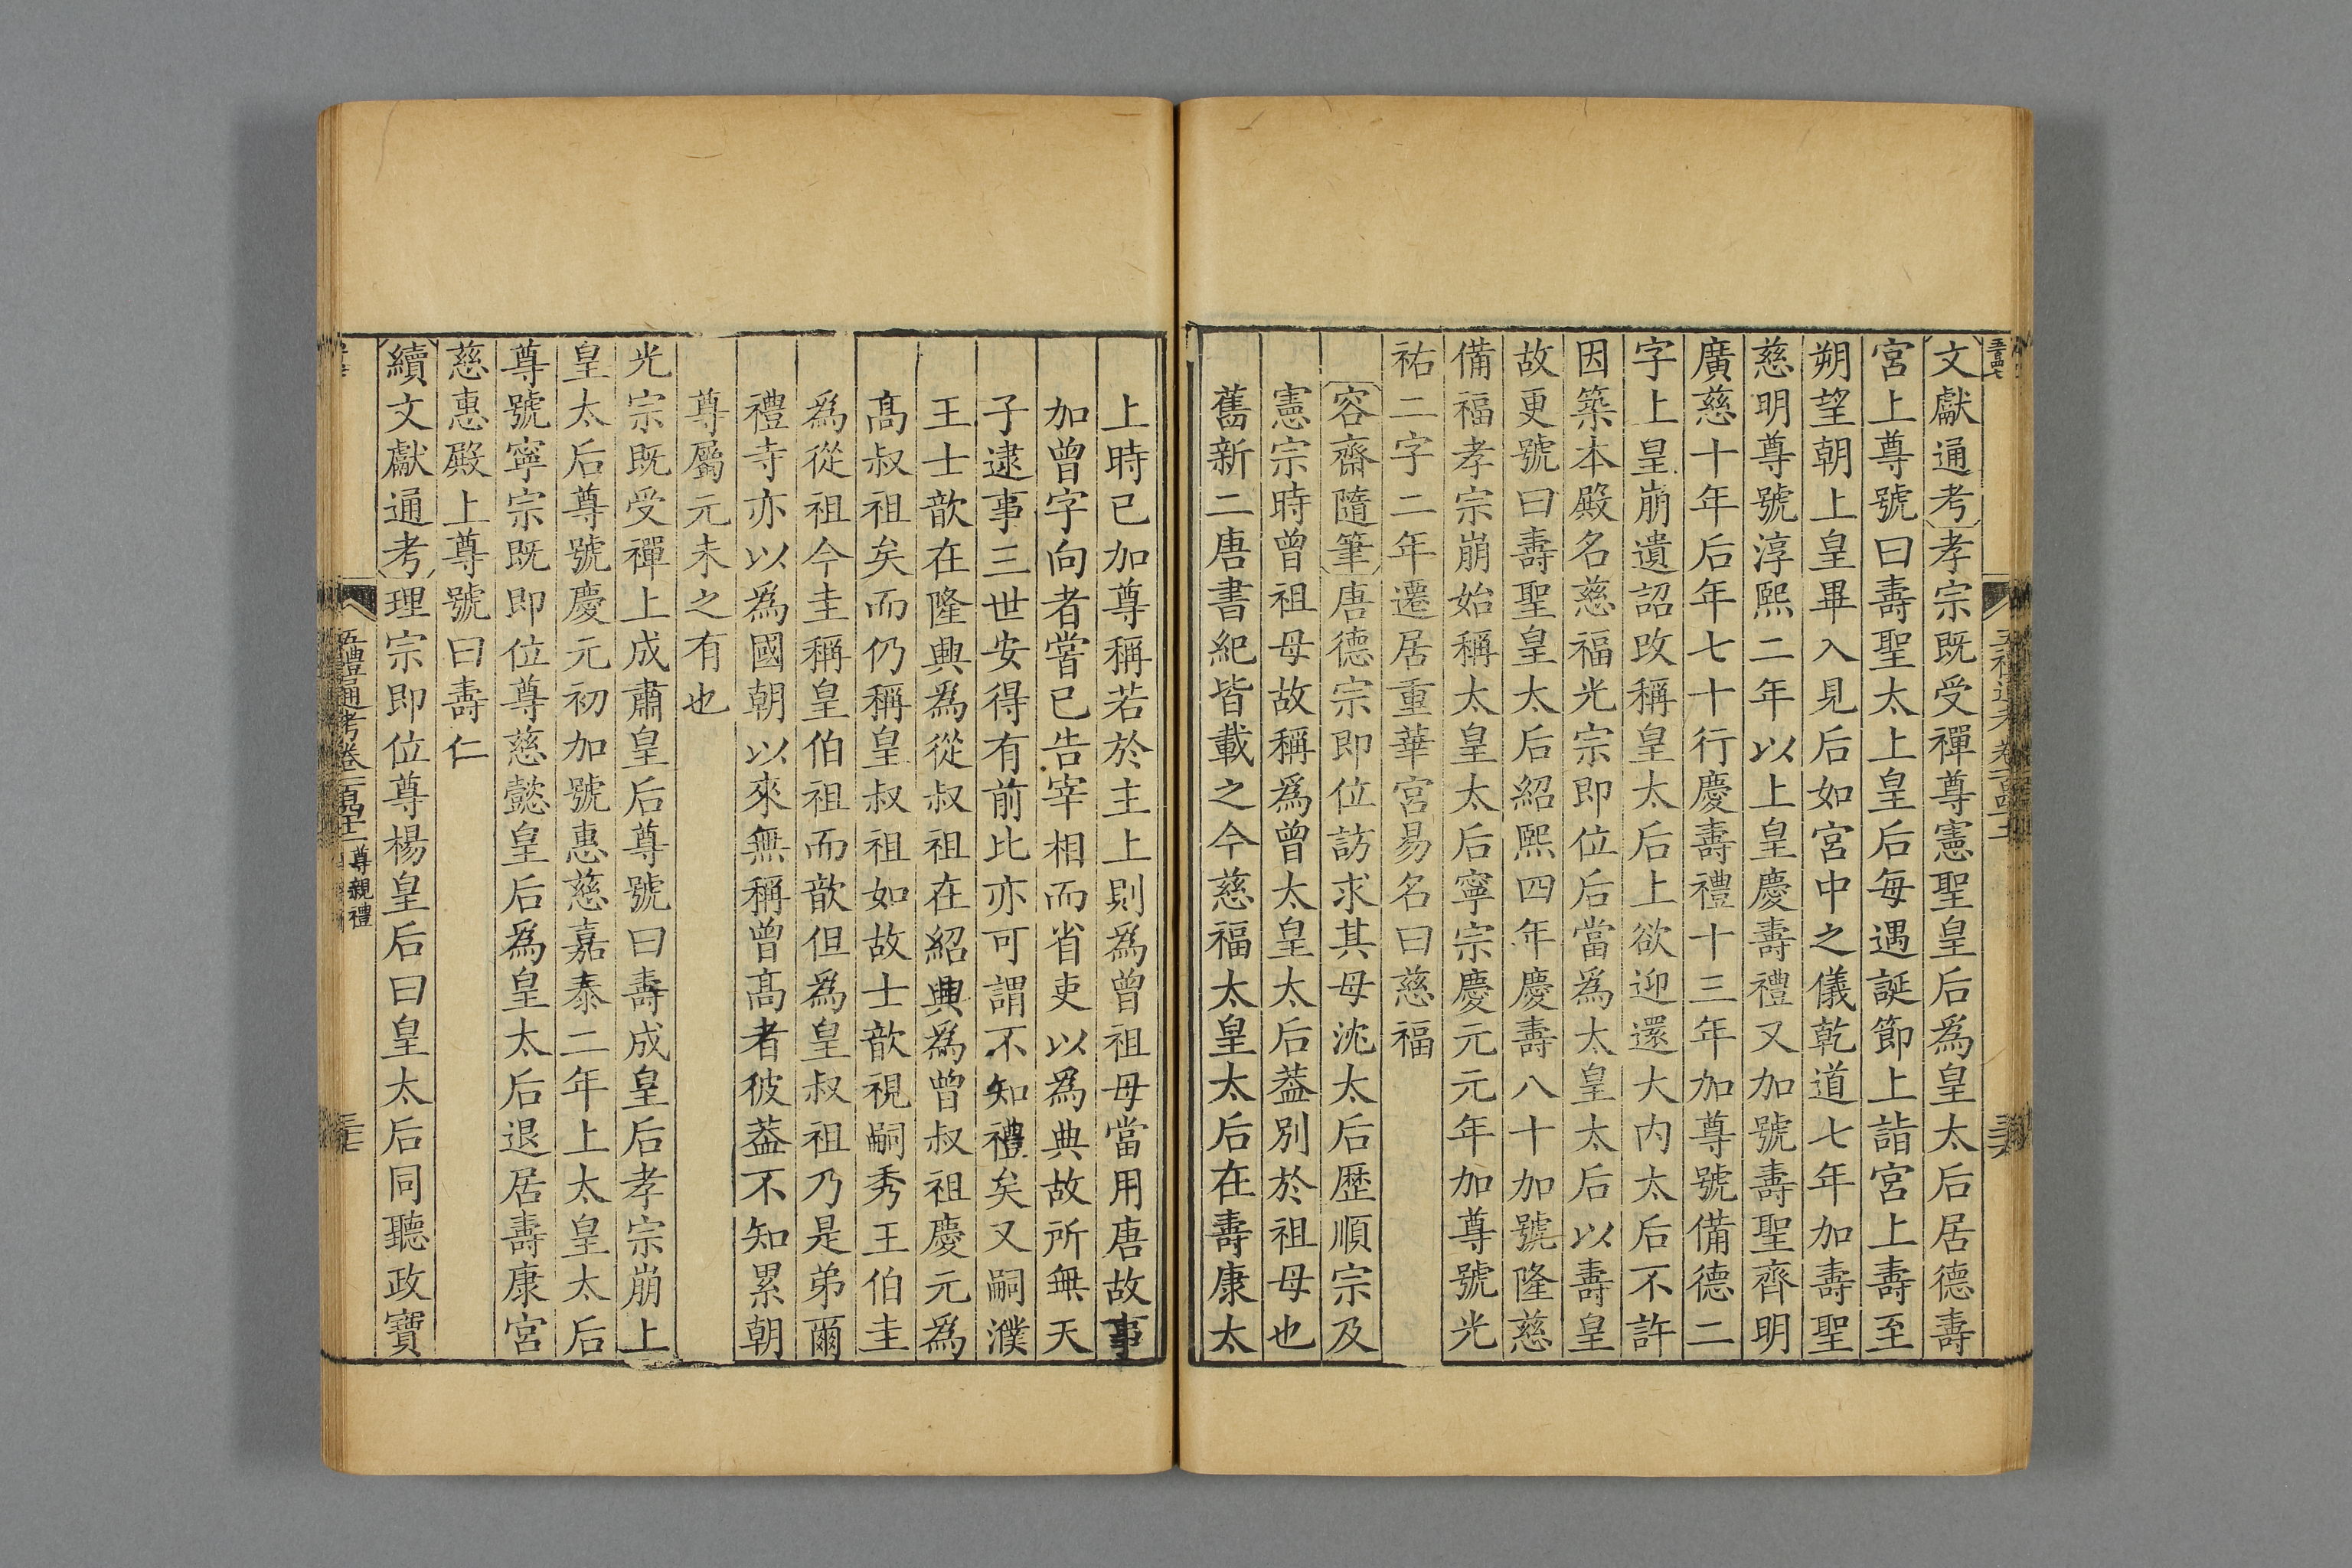 文獻通考孝宗既受禪尊憲聖皇后為皇太后居德壽
宮上尊號曰壽聖太上皇后每遇誕節上詣宮上壽至
朔望朝上皇畢入見后如宮中之儀乾道七年加壽聖
慈明尊號淳熙二年以上皇慶壽禮又加號壽聖齊明
廣慈十年后年七十行慶壽禮十三年加尊號備德二
字上皇崩遺詔改稱皇太后上欲迎還大內太后不許
因築本殿名慈福光宗即位后當為太皇太后以壽皇
故更號曰壽聖皇太后紹熙四年慶壽八十加號隆慈
備福孝宗崩始稱太皇太后寧宗慶元元年加尊號光
祐二字二年遷居重華宮易名曰慈福
容齋隨筆唐德宗即位訪求其母沈太后歷順宗及
憲宗時曾祖母故稱為曾太皇太后葢別於祖母也
舊新二唐書紀皆載之今慈福太皇太后在壽康太
上時已加尊稱若於主上則為曾祖母當用唐故事
加曾字向者嘗已告宰相而省吏以為典故所無天
子逮事三世安得有前比亦可謂不知禮矣又嗣濮
王士歆在隆興為從叔祖在紹興為曾叔祖慶元為
髙叔祖矣而仍稱皇叔祖如故士歆視嗣秀王伯圭
為從祖今圭稱皇伯祖而歆但為皇叔祖乃是弟爾
禮寺亦以為國朝以來無稱曾髙者彼葢不知累朝
尊屬元未之有也
光宗既受禪上成肅皇后尊號曰壽成皇后孝宗崩上
皇太后尊號慶元初加號惠慈嘉泰二年上太皇太后
尊號寧宗既即位尊慈懿皇后為皇太后退居壽康宮
慈惠殿上尊號曰壽仁
續文獻通考理宗即位尊楊皇后曰皇太后同聽政寶
五禮通考卷一百四十二 尊親禮